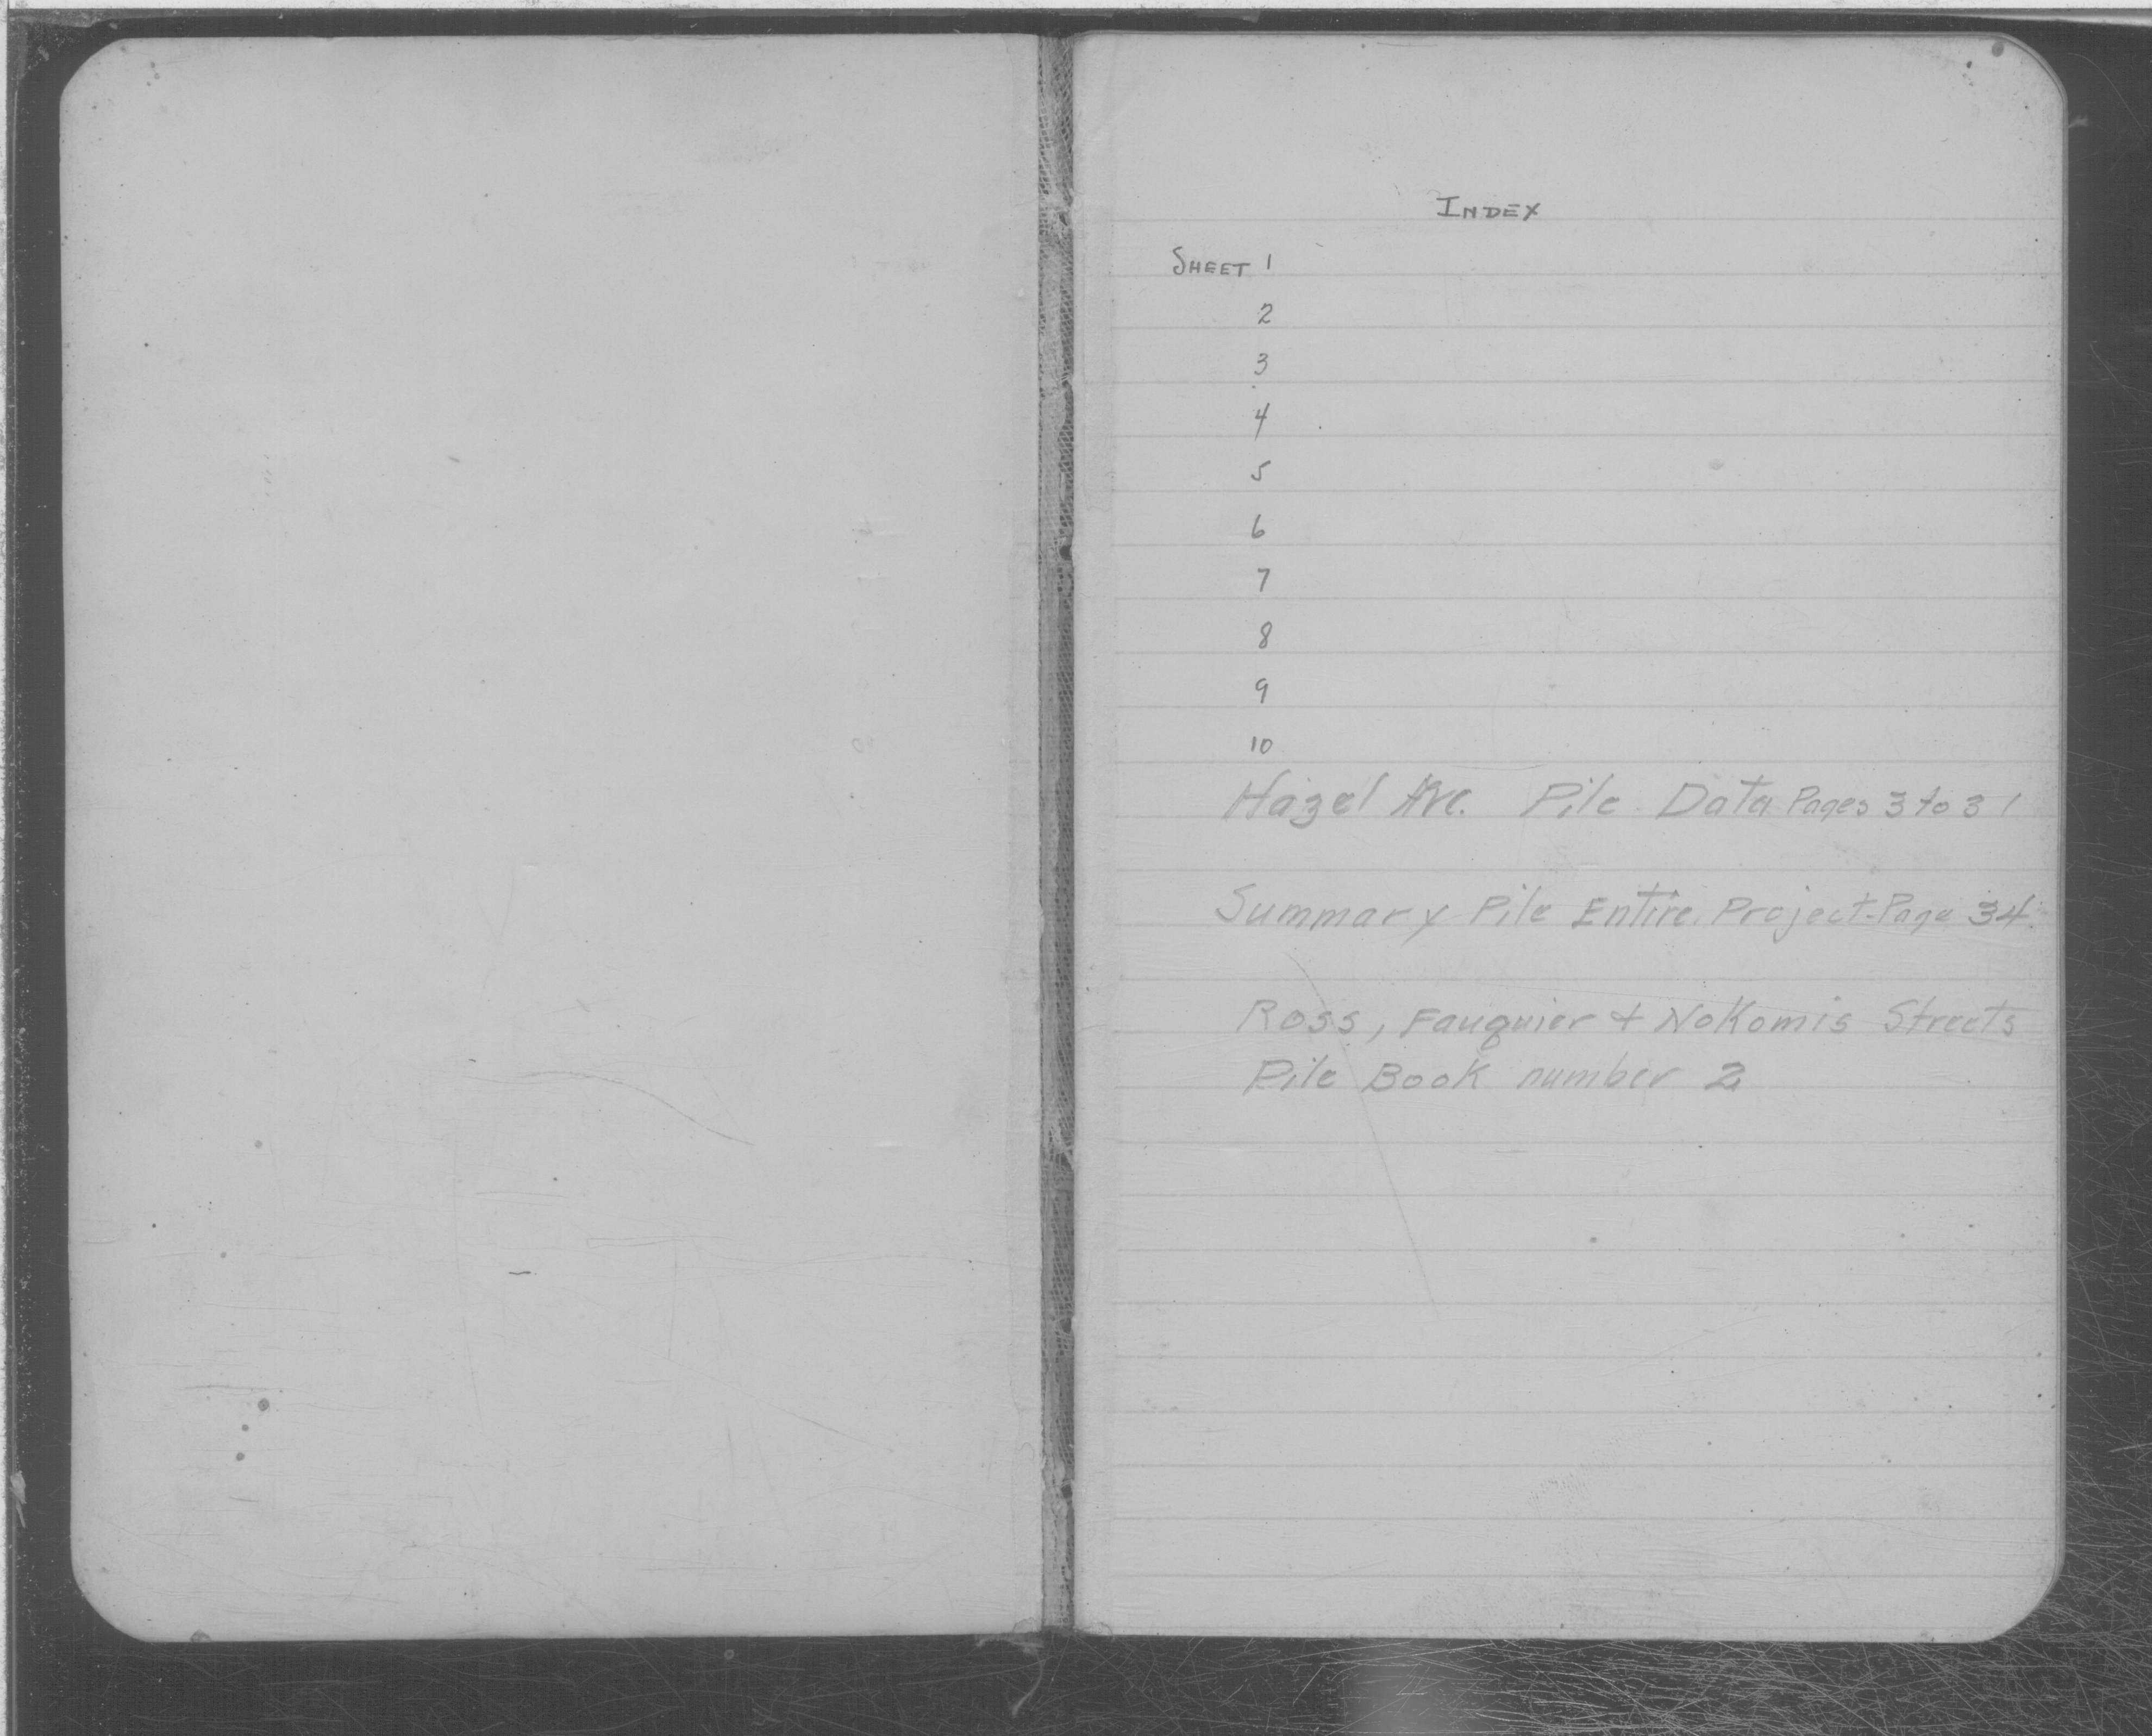 INDEX
SHEET 1
2
3
4
5
6
7
8
9
10
Hazel Ave. Pile Data Pages 3 to 31
Summary Pile Entire Project-Page 34.
Ross, Fauquier + Nokomis Streets
Pile Book number 2